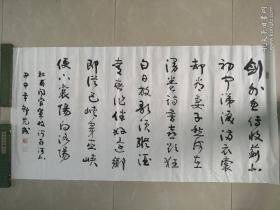 劍外忽传收薊北
初闻涕泪满衣裳
却看妻子愁何在
漫卷诗书喜欲狂
白日放歌须纵酒
青春作伴好还乡
即从巴峡穿巫峡
便下襄阳向洛阳
杜甫闻官军收河南河北
甲申年